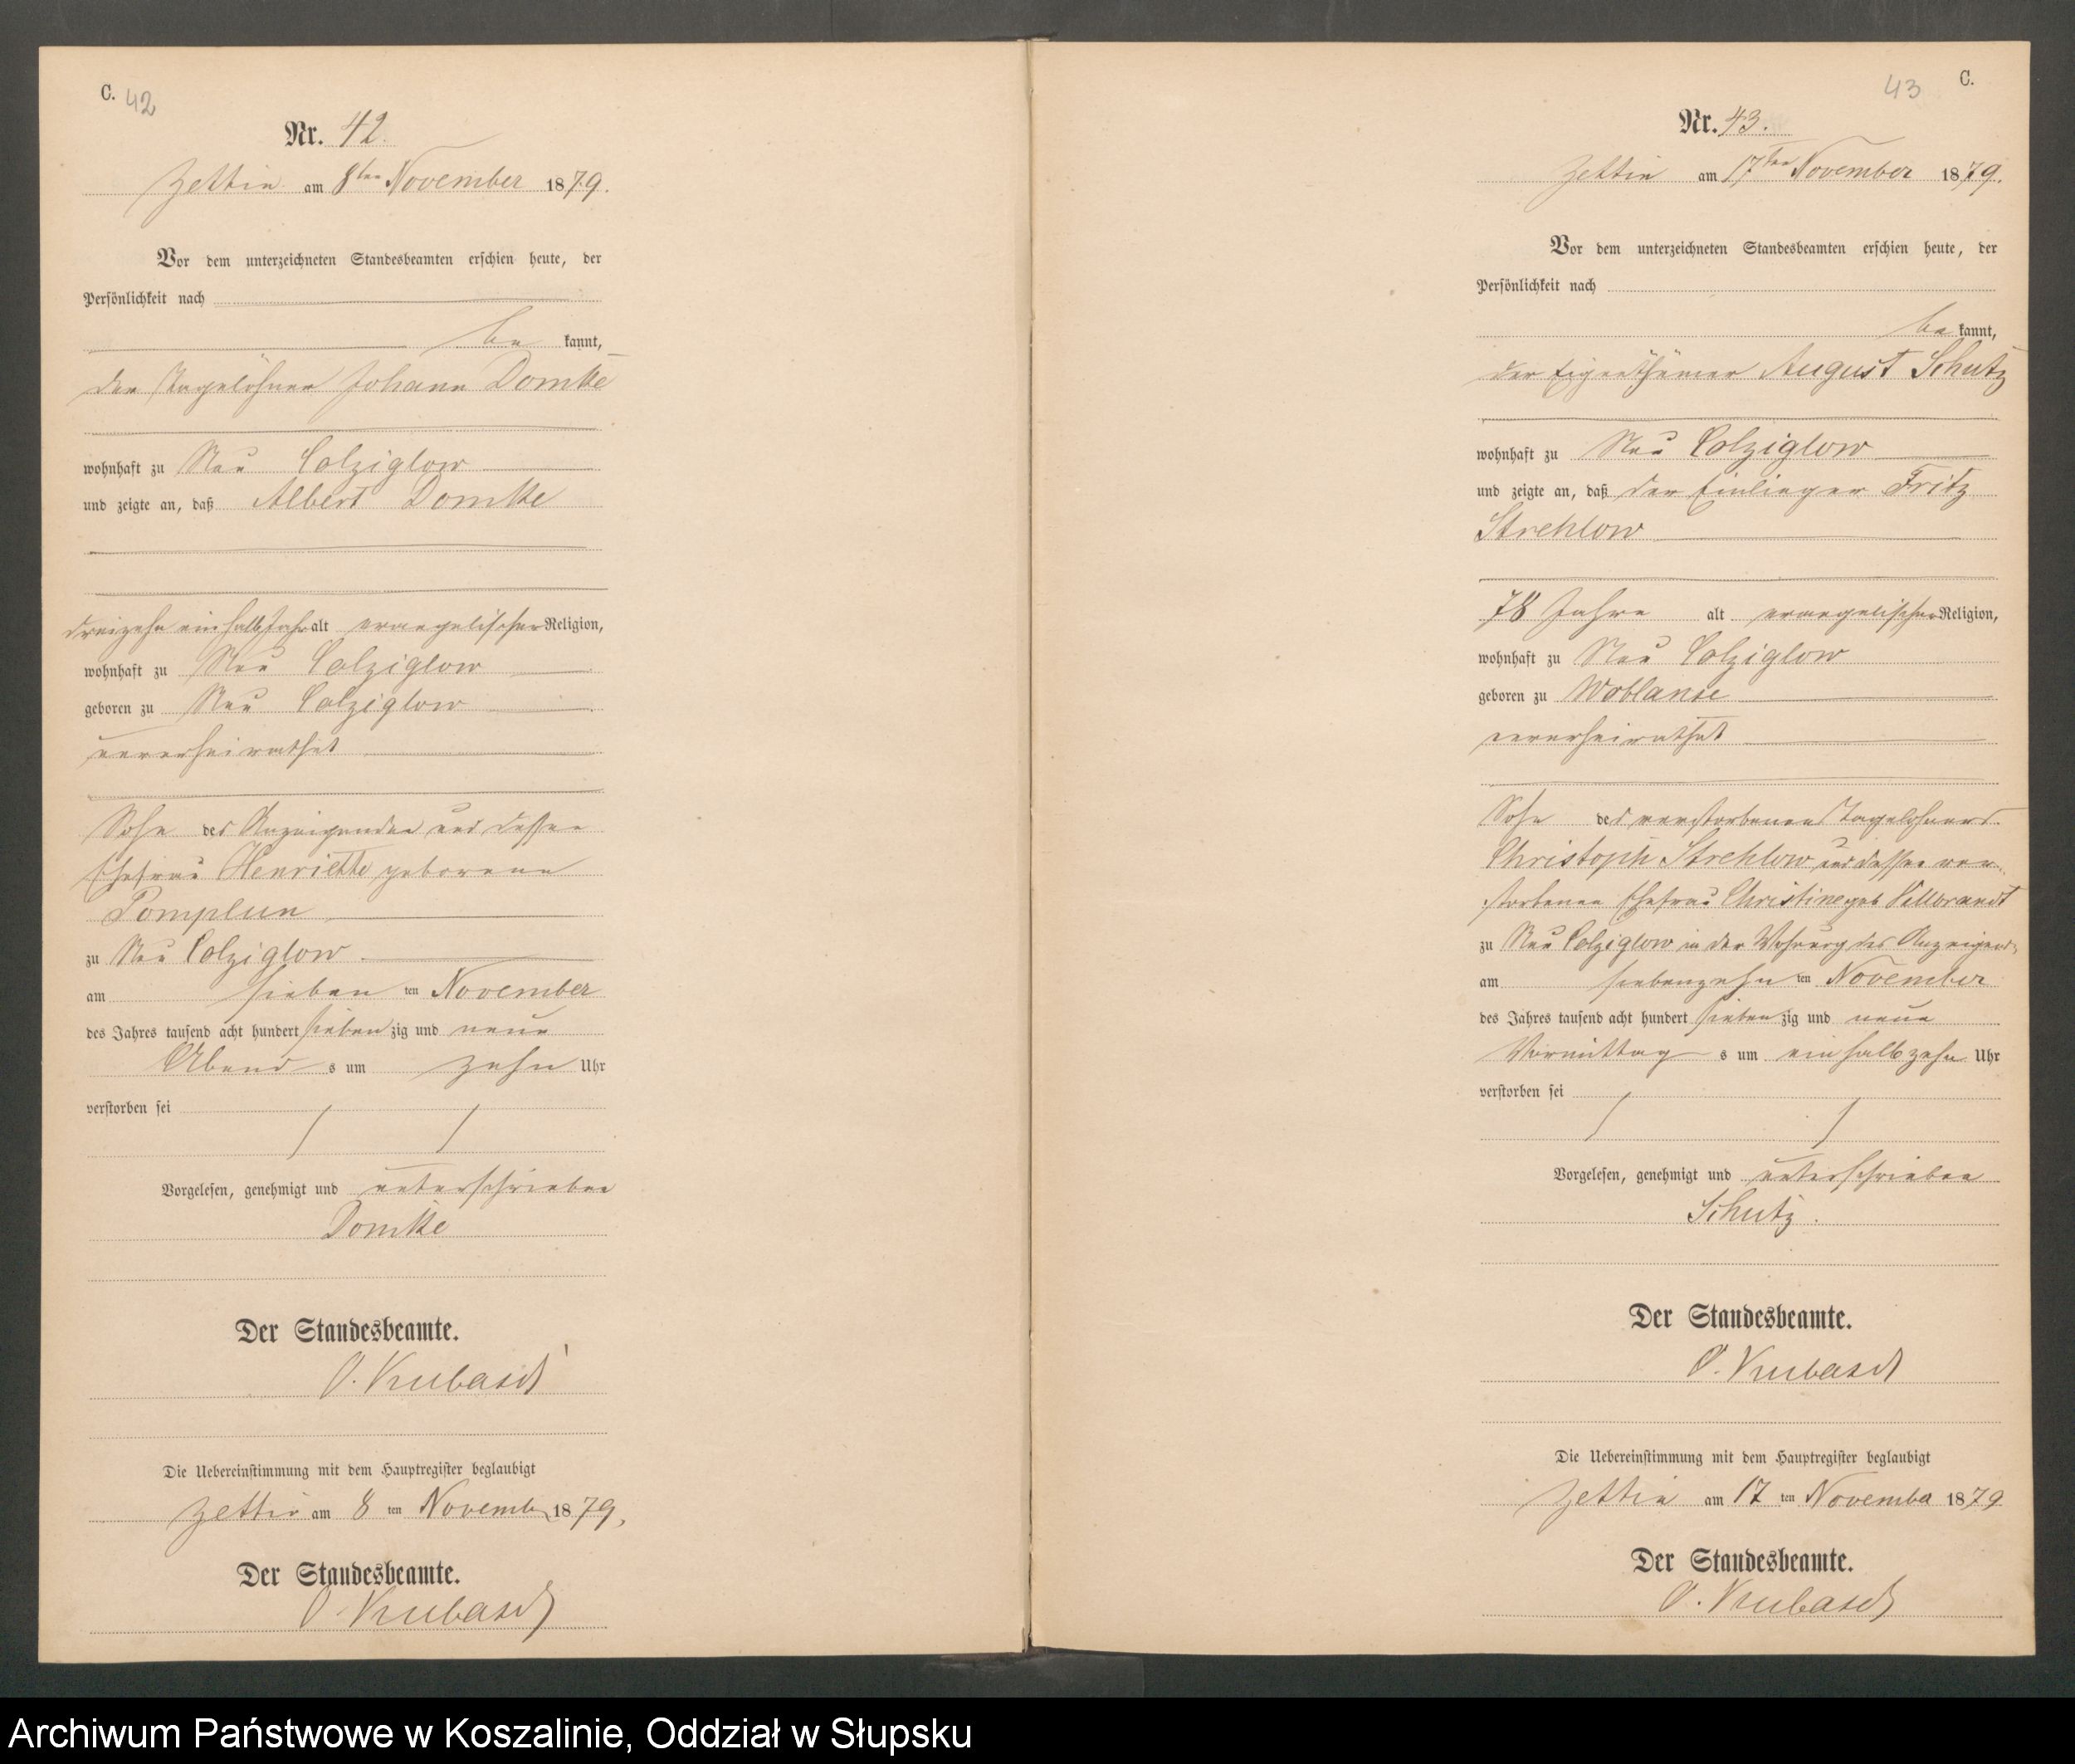 C. 42
Nr. 42.
Zettin am 8ten November 1879.
Vor dem unterzeichneten Standesbeamten erschien heute, der
Persönlichkeit nach
be kannt,
der Tagelöhner Johann Domke
wohnhaft zu Neu Colziglow
und zeigte an, daß Albert Domke
dreizehn einhalb Jahr alt evangelischer Religion,
wohnhaft zu Neu Colziglow
geboren zu Neu Colziglow
unverheirathet
Sohn des Anzeigenden und dessen
Ehefrau Henriette geborene
Pomplun
zu Neu Colziglow
am sieben ten November
des Jahres tausend acht hundert sieben zig und neun
Abend s um zehn Uhr
verstorben sei
Vorgelesen, genehmigt und unterschrieben
Domke
Der Standesbeamte.
O. Kubasch
Die Uebereinstimmung mit dem Hauptregister beglaubigt
Zettin am 8 ten Novemb 1879.
Der Standesbeamte.
O. Kubasch
43 C.
Nr. 43.
Zettin am 17ten November 1879.
Vor dem unterzeichneten Standesbeamten erschien heute, der
Persönlichkeit nach
be kannt,
der Eigenthümer August Schutz
wohnhaft zu Neu Colziglow
und zeigte an, daß der Einlieger Fritz
Strehlow
78 Jahre alt evangelischer Religion,
wohnhaft zu Neu Colziglow
geboren zu Woblanse
verheirathet
Sohn des verstorbenen Tagelöhners
Christoph Strehlow und dessen ver-
storbenen Ehefrau Christine geb
zu Neu Colziglow in der Wohnung des Anzeigend
am siebenzehn ten November
des Jahres tausend acht hundert sieben zig und neun
Vormittag s um einhalb zehn Uhr
verstorben sei
Vorgelesen, genehmigt und unterschrieben
Schutz.
Der Standesbeamte.
O. Kubasch
Die Uebereinstimmung mit dem Hauptregister beglaubigt
Zettin am 17 ten November 1879
Der Standesbeamte.
O. Kubasch
Archiwum Państwowe w Koszalinie, Oddział w Słupsku